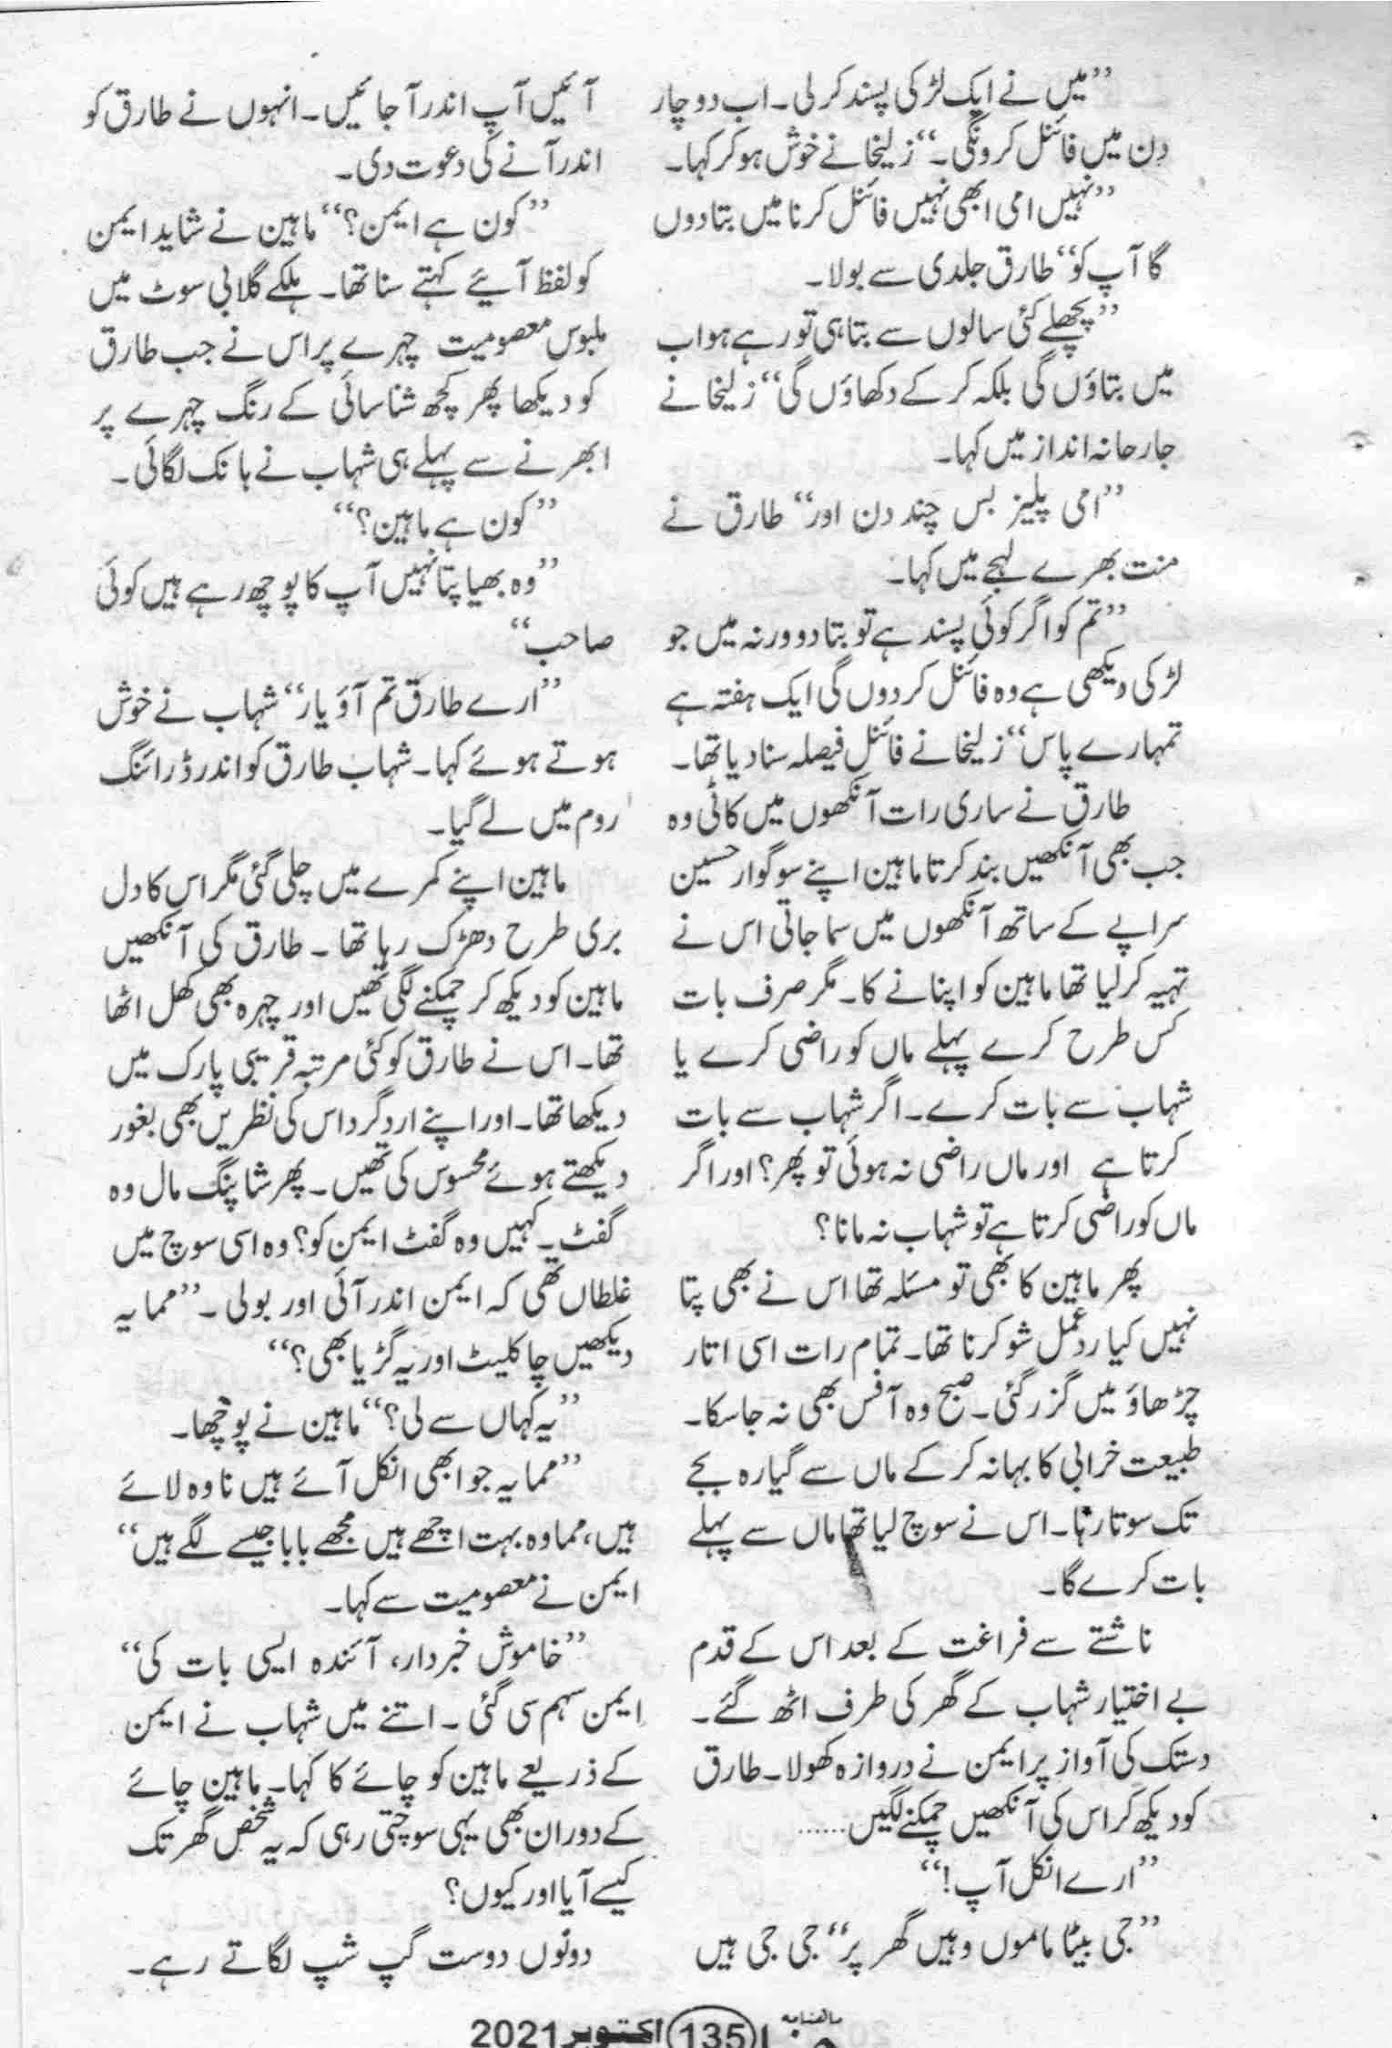 ”میں نے ایک لڑکی پسند کر لی۔ اب دو چار
دن میں فائنل کرونگی۔“ زلیخا نے خوش ہو کر کہا۔
”نہیں امی ابھی نہیں فائنل کرنا میں بتا دوں
گا آپ کو“ طارق جلدی سے بولا۔
”پچھلے کئی سالوں سے بتا ہی تو رہے ہو اب
میں بتاؤں گی بلکہ کر کے دکھاؤں گی“ زلیخا نے
جارحانہ انداز میں کہا۔
”امی پلیز بس چند دن اور“ طارق نے
منت بھرے لہجے میں کہا۔
”تم کو اگر کوئی پسند ہے تو بتا دو ورنہ میں جو
لڑکی دیکھی ہے وہ فائنل کر دوں گی ایک ہفتہ ہے
تمہارے پاس“ زلیخا نے فائنل فیصلہ سنا دیا تھا۔
طارق نے ساری رات آنکھوں میں کاٹی وہ
جب بھی آنکھیں بند کرتا ماہین اپنے سوگوار حسین
سراپے کے ساتھ آنکھوں میں سما جاتی اس نے
تہیہ کر لیا تھا ماہین کو اپنانے کا۔ مگر صرف بات
کس طرح کرے پہلے ماں کو راضی کرے یا
شہاب سے بات کرے۔ اگر شہاب سے بات
کرتا ہے اور ماں راضی نہ ہوئی تو پھر؟ اور اگر
ماں کو راضی کرتا ہے تو شہاب نہ مانا؟
پھر ماہین کا بھی تو مسئلہ تھا اس نے بھی پتا
نہیں کیا ردعمل شو کرنا تھا۔ تمام رات اسی اتار
چڑھاؤ میں گزر گئی۔ صبح وہ آفس بھی نہ جا سکا۔
طبیعت خرابی کا بہانہ کر کے ماں سے گیارہ بجے
تک سوتا رہا۔ اس نے سوچ لیا تھا ماں سے پہلے
بات کرے گا۔
ناشتے سے فراغت کے بعد اس کے قدم
بے اختیار شہاب کے گھر کی طرف اٹھ گئے۔
دستک کی آواز پر ایمن نے دروازہ کھولا۔ طارق
کو دیکھ کر اس کی آنکھیں چمکنے لگیں......
”ارے انکل آپ!“
”جی بیٹا ماموں وہیں گھر پر“ جی جی ہیں
آئیں آپ اندر آ جائیں۔ انہوں نے طارق کو
اندر آنے کی دعوت دی۔
”کون ہے ایمن؟“ ماہین نے شاید ایمن
کو لفظ آئیے کہتے سنا تھا۔ ہلکے گلابی سوٹ میں
ملبوس معصومیت چہرے پر اس نے جب طارق
کو دیکھا پھر کچھ شناسائی کے رنگ چہرے پر
ابھرنے سے پہلے ہی شہاب نے ہانک لگائی۔
”کون ہے ماہین؟“
”وہ بھیا پتا نہیں آپ کا پوچھ رہے ہیں کوئی
صاحب“
”ارے طارق تم آؤ یار“ شہاب نے خوش
ہوتے ہوئے کہا۔ شہاب طارق کو اندر ڈرائنگ
روم میں لے گیا۔
ماہین اپنے کمرے میں چلی گئی مگر اس کا دل
بری طرح دھڑک رہا تھا۔ طارق کی آنکھیں
ماہین کو دیکھ کر چمکنے لگی تھیں اور چہرہ بھی کھل اٹھا
تھا۔ اس نے طارق کو کئی مرتبہ قریبی پارک میں
دیکھا تھا۔ اور اپنے اردگرد اس کی نظریں بھی بغور
دیکھتے ہوئے محسوس کی تھیں۔ پھر شاپنگ مال وہ
گفٹ۔ کہیں وہ گفٹ ایمن کو؟ وہ اسی سوچ میں
غلطاں تھی کہ ایمن اندر آئی اور بولی۔ ”مما یہ
دیکھیں چاکلیٹ اور یہ گڑیا بھی؟“
”یہ کہاں سے لی؟“ ماہین نے پوچھا۔
”مما یہ جو ابھی انکل آئے ہیں نا وہ لائے
ہیں، مما وہ بہت اچھے ہیں مجھے بابا جیسے لگے ہیں“
ایمن نے معصومیت سے کہا۔
”خاموش خبردار، آئندہ ایسی بات کی“
ایمن سہم سی گئی۔ اتنے میں شہاب نے ایمن
کے ذریعے ماہین کو چائے کا کہا۔ ماہین چائے
کے دوران بھی یہی سوچتی رہی کہ یہ شخص گھر تک
کیسے آیا اور کیوں؟
دونوں دوست گپ شپ لگاتے رہے۔
ماہنامہ حنا 135 اکتوبر 2021